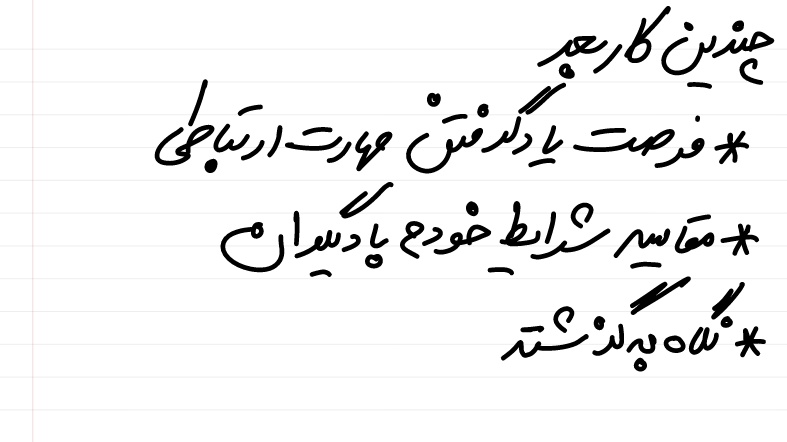 چندین کار بعد
* فرصت یادگرفتن مهارت ارتباطی
* مقایسه شرایط خودم با دیگران
* نگاه به گذشته